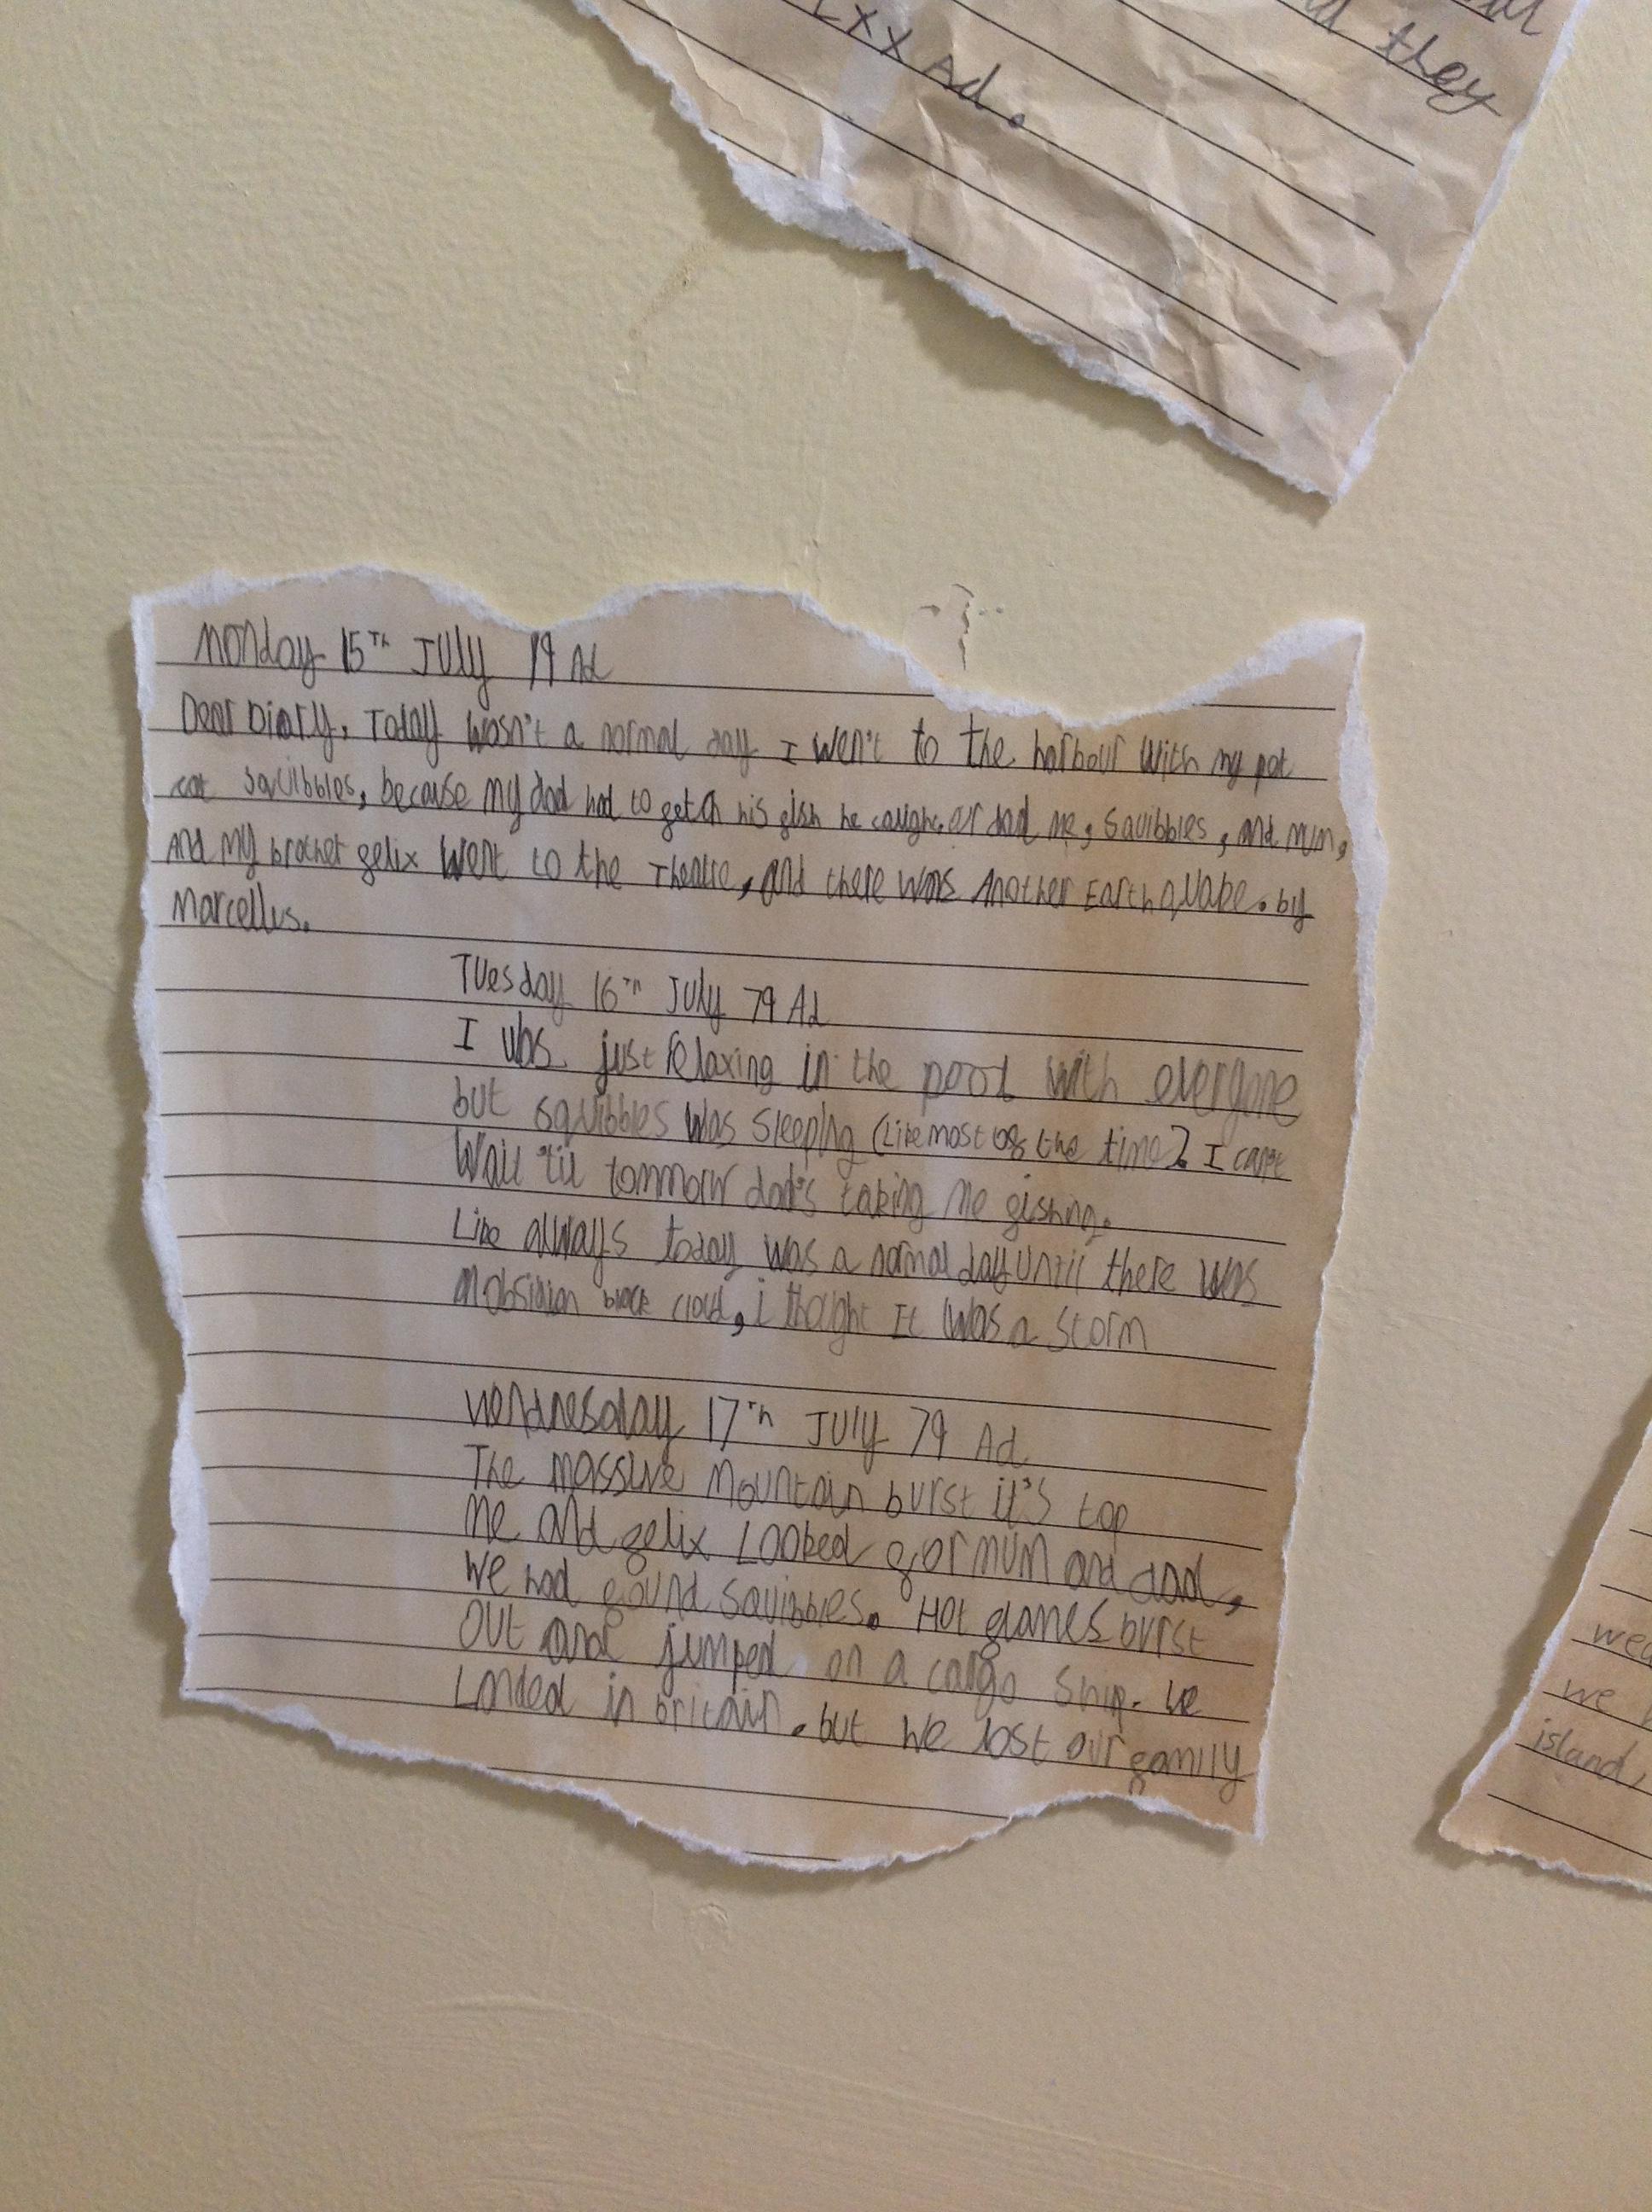 al
d they
LXX Ad.
Monday 15Th July 79 Ad
Dear Diary, Today wasn't a normal day I wen't to the harbour with my pet
cat Squibbles, because my dad had to fetch his fish he caught. dad me, Squibbles, and mum,
And my brother felix went to the Theatre, and there was Another Earthquake. by
Marcellus.
Tuesday 16Th July 79 Ad
I was just relaxing in the pool with everyone
but squibbles was sleeping (Like most of the time). I can't
Wait 'til tommorw dad's taking me fishing.
Like always today was a normal day until there was
an obsidian black cloud, i thought It was a storm
Wendnesday 17Th July 79 Ad
The massive Mountain burst it's top
Me and felix Looked for mum and dad,
We had found Squibbles. Hot flames burst
Out and jumped on a cargo ship. We
Landed in britain. but We lost our family
wed
we
island,